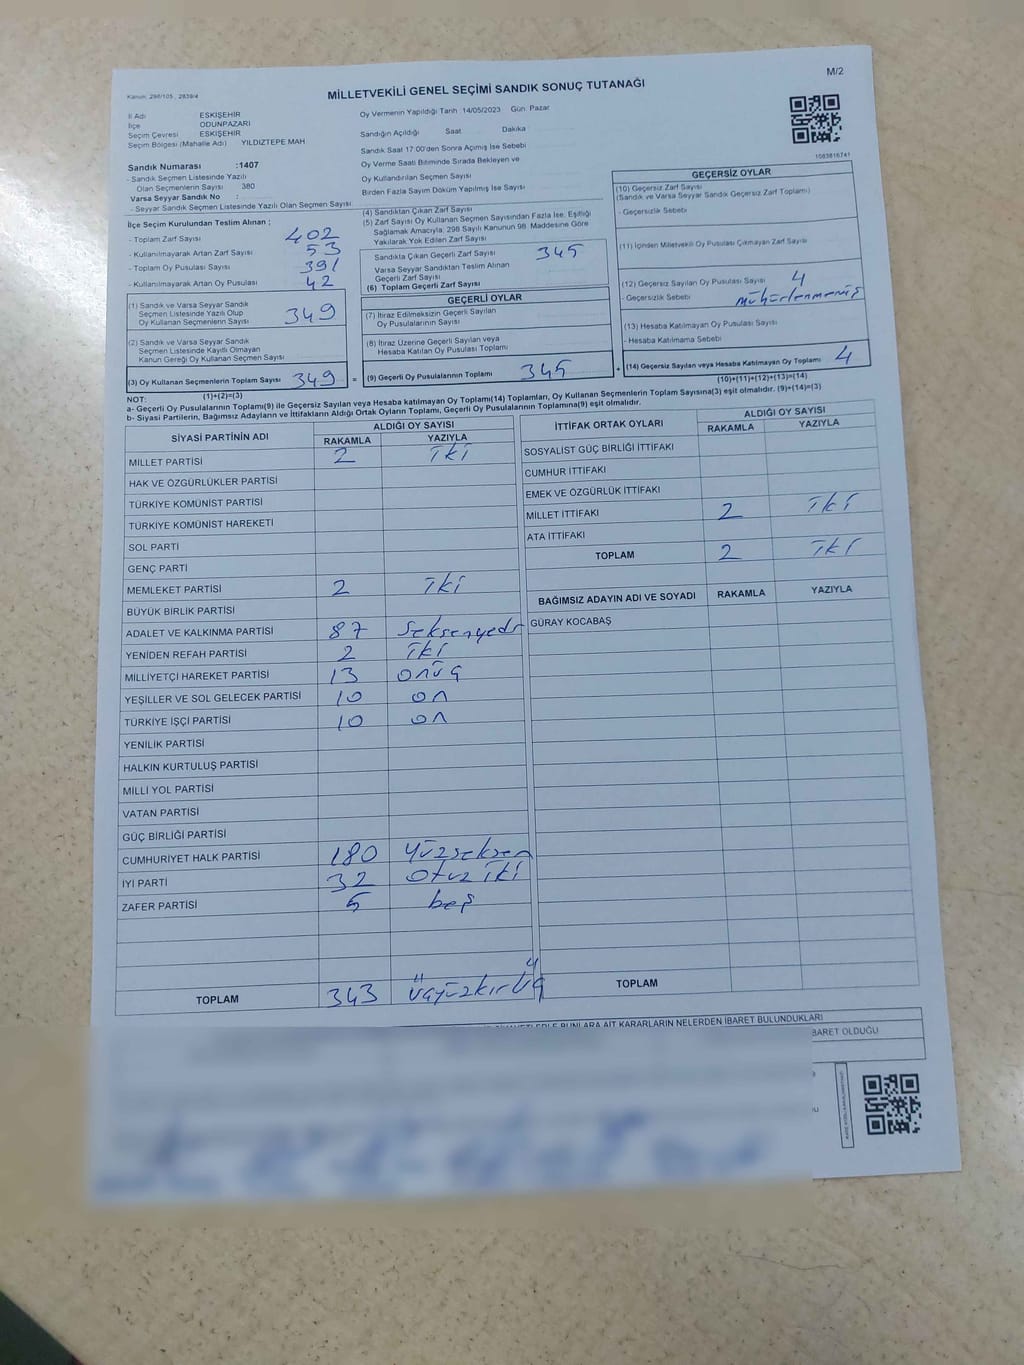 Kanun: 298/105 , 2839/4
MİLLETVEKİLİ GENEL SEÇİMİ SANDIK SONUÇ TUTANAĞI
M/2
İl Adı ESKİŞEHİR
İlçe ODUNPAZARI
Seçim Çevresi ESKİŞEHİR
Seçim Bölgesi (Mahalle Adı) YILDIZTEPE MAH
Sandık Numarası :1407
- Sandık Seçmen Listesinde Yazılı
Olan Seçmenlerin Sayısı 380
Varsa Seyyar Sandık No :
- Seyyar Sandık Seçmen Listesinde Yazılı Olan Seçmen Sayısı
Oy Vermenin Yapıldığı Tarih 14/05/2023 Gün Pazar
Sandığın Açıldığı Saat Dakika
Sandık Saat 17.00'den Sonra Açmış İse Sebebi
Oy Verme Saati Bitiminde Sırada Bekleyen ve
Oy Kullandırılan Seçmen Sayısı
Birden Fazla Sayım Döküm Yapılmış İse Sayısı
1083816741
İlçe Seçim Kurulundan Teslim Alınan ;
- Toplam Zarf Sayısı 402
- Kullanılmayarak Artan Zarf Sayısı 53
- Toplam Oy Pusulası Sayısı 391
- Kullanılmayarak Artan Oy Pusulası 42
(1) Sandık ve Varsa Seyyar Sandık
Seçmen Listesinde Yazılı Olup
Oy Kullanan Seçmenlerin Sayısı 349
(2) Sandık ve Varsa Seyyar Sandık
Seçmen Listesinde Kayıtlı Olmayan
Kanun Gereği Oy Kullanan Seçmen Sayısı
(3) Oy Kullanan Seçmenlerin Toplam Sayısı 349 =
(1)+(2)=(3)
(4) Sandıktan Çıkan Zarf Sayısı
(5) Zarf Sayısı Oy Kullanan Seçmen Sayısından Fazla İse, Eşitliği
Sağlamak Amacıyla; 298 Sayılı Kanunun 98. Maddesine Göre
Yakılarak Yok Edilen Zarf Sayısı
Sandıkla Çıkan Geçerli Zarf Sayısı 345
Varsa Seyyar Sandıktan Teslim Alınan
Geçerli Zarf Sayısı
(6) Toplam Geçerli Zarf Sayısı
GEÇERLİ OYLAR
(7) İtiraz Edilmeksizin Geçerli Sayılan
Oy Pusulalarının Sayısı
(8) İtiraz Üzerine Geçerli Sayılan veya
Hesaba Katılan Oy Pusulası Toplamı
(9) Geçerli Oy Pusulalarının Toplamı 345 +
GEÇERSİZ OYLAR
(10) Geçersiz Zarf Sayısı
(Sandık ve Varsa Seyyar Sandık Geçersiz Zarf Toplamı)
- Geçersizlik Sebebi
(11) İçinden Milletvekili Oy Pusulası Çıkmayan Zarf Sayısı
(12) Geçersiz Sayılan Oy Pusulası Sayısı 4
- Geçersizlik Sebebi mühürlenmemiş
(13) Hesaba Katılmayan Oy Pusulası Sayısı
- Hesaba Katılmama Sebebi
(14) Geçersiz Sayılan veya Hesaba Katılmayan Oy Toplamı 4
(10)+(11)+(12)+(13)=(14)
NOT:
a- Geçerli Oy Pusulalarının Toplamı(9) ile Geçersiz Sayılan veya Hesaba katılmayan Oy Toplamı(14) Toplamları, Oy Kullanan Seçmenlerin Toplam Sayısına(3) eşit olmalıdır. (9)+(14)=(3)
b- Siyasi Partilerin, Bağımsız Adayların ve İttifakların Aldığı Ortak Oyların Toplamı, Geçerli Oy Pusulalarının Toplamına(9) eşit olmalıdır.
SİYASİ PARTİNİN ADI ALDIĞI OY SAYISI
RAKAMLA YAZIYLA
MİLLET PARTİSİ 2 iki
HAK VE ÖZGÜRLÜKLER PARTİSİ
TÜRKİYE KOMÜNİST PARTİSİ
TÜRKİYE KOMÜNİST HAREKETİ
SOL PARTİ
GENÇ PARTİ
MEMLEKET PARTİSİ 2 iki
BÜYÜK BİRLİK PARTİSİ
ADALET VE KALKINMA PARTİSİ 87 Seksenyedi
YENİDEN REFAH PARTİSİ 2 iki
MİLLİYETÇİ HAREKET PARTİSİ 13 onüç
YEŞİLLER VE SOL GELECEK PARTİSİ 10 on
TÜRKİYE İŞÇİ PARTİSİ 10 on
YENİLİK PARTİSİ
HALKIN KURTULUŞ PARTİSİ
MİLLİ YOL PARTİSİ
VATAN PARTİSİ
GÜÇ BİRLİĞİ PARTİSİ
CUMHURİYET HALK PARTİSİ 180 Yüzseksen
İYİ PARTİ 32 otuz iki
ZAFER PARTİSİ 5 beş
TOPLAM 343 üçyüzkırküç
İTTİFAK ORTAK OYLARI ALDIĞI OY SAYISI
RAKAMLA YAZIYLA
SOSYALİST GÜÇ BİRLİĞİ İTTİFAKI
CUMHUR İTTİFAKI
EMEK VE ÖZGÜRLÜK İTTİFAKI
MİLLET İTTİFAKI 2 iki
ATA İTTİFAKI
TOPLAM 2 iki
BAĞIMSIZ ADAYIN ADI VE SOYADI RAKAMLA YAZIYLA
GÜRAY KOCABAŞ
TOPLAM
BUNLARA AİT KARARLARIN NELERDEN İBARET BULUNDUKLARI
İBARET OLDUĞU